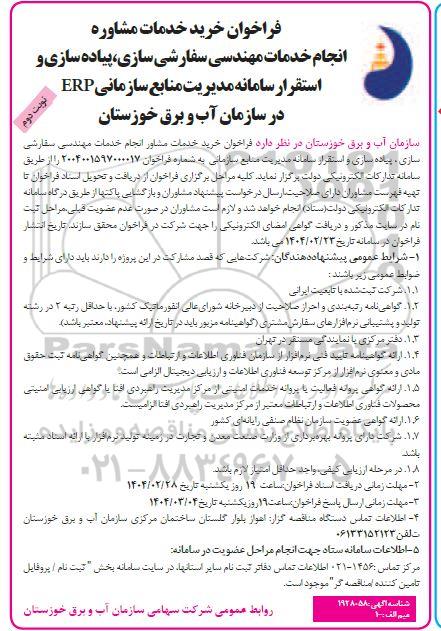 فراخوان خرید خدمات مشاوره
انجام خدمات مهندسی سفارشی سازی، پیاده سازی و
استقرار سامانه مدیریت منابع سازمانی ERP
در سازمان آب و برق خوزستان
نوبت دوم
سازمان آب و برق خوزستان در نظر دارد فراخوان خرید خدمات مشاور انجام خدمات مهندسی سفارشی
سازی ، پیاده سازی و استقرار سامانه مدیریت منابع سازمانی به شماره فراخوان ۲۰۰۴۰۰۱۵۹۷۰۰۰۰۱۷ را از طریق
سامانه تدارکات الکترونیکی دولت برگزار نماید. کلیه مراحل برگزاری فراخوان از دریافت و تحویل اسناد فراخوان تا
تهیه فهرست مشاوران دارای صلاحیت،ارسال درخواست پیشنهاد مشاوران و بازگشایی پاکتها از طریق درگاه سامانه
تدارکات الکترونیکی دولت(ستاد) انجام خواهد شد و لازم است مشاوران در صورت عدم عضویت قبلی،مراحل ثبت
نام در سایت مذکور و دریافت گواهی امضای الکترونیکی را جهت شرکت در فراخوان محقق سازند. تاریخ انتشار
فراخوان در سامانه تاریخ ۱۴۰۴/۰۲/۲۳ می باشد.
۱- شرایط عمومی پیشنهاددهندگان: شرکت‌هایی که قصد مشارکت در این پروژه را دارند باید دارای شرایط و
ضوابط عمومی زیر باشند :
۱.۱. شرکت ثبت‌شده با تابعیت ایرانی
۱.۲. گواهی‌نامه رتبه‌بندی و احراز صلاحیت از دبیرخانه شورای‌عالی انفورماتیک کشور، با حداقل رتبه ۲ در رشته
تولید و پشتیبانی نرم‌افزارهای سفارش مشتری (گواهینامه مزبور باید در تاریخ ارائه پیشنهاد، معتبر باشد).
۱.۳. دفتر مرکزی یا نمایندگی مستقر در تهران
۱.۴. ارائه گواهینامه تایید فنی نرم‌افزار از سازمان فناوری اطلاعات و ارتباطات و همچنین گواهی‌نامه ثبت حقوق
مادی و معنوی نرم‌افزار از مرکز توسعه فناوری اطلاعات و ارزیابی دیجیتال الزامی است.
۱.۵. ارائه گواهی پروانه فعالیت یا پروانه خدمات امنیتی از مرکز مدیریت راهبردی افتا یا گواهی ارزیابی امنیتی
محصولات فناوری اطلاعات و ارتباطات معتبر از مرکز مدیریت راهبردی افتا الزامیست.
۱.۶. ارائه گواهی عضویت سازمان نظام صنفی رایانه‌ای کشور
۱.۷. شرکت دارای پروانه بهره‌برداری از وزارت صنعت معدن و تجارت در زمینه تولید نرم‌افزار یا ارائه اسناد مثبته
باشد.
۱.۸. در مرحله ارزیابی کیفی، واجد حداقل امتیاز لازم باشد.
۲-مهلت زمانی دریافت اسناد فراخوان:ساعت ۱۹ روز یکشنبه تاریخ ۱۴۰۴/۰۲/۲۸
۳-مهلت زمانی ارسال پاسخ فراخوان:ساعت۱۹روزیکشنبه تاریخ ۱۴۰۴/۰۳/۰۴
۴- اطلاعات تماس دستگاه مناقصه گزار: اهواز بلوار گلستان ساختمان مرکزی سازمان آب و برق خوزستان
تلفن۰۶۱۳۳۱۵۲۱۲۳
۵-اطلاعات سامانه ستاد جهت انجام مراحل عضویت در سامانه:
مرکز تماس :۱۴۵۶-۰۲۱ اطلاعات تماس دفاتر ثبت نام سایر استانها، در سایت سامانه بخش "ثبت نام / پروفایل
تامین کننده /مناقصه گر" موجود است.
روابط عمومی شرکت سهامی سازمان آب و برق خوزستان
شناسه آگهی :۱۹۲۸۰۵۸
ParsNamad
۰۲۱-۸۸۳۴۹۶۷۰